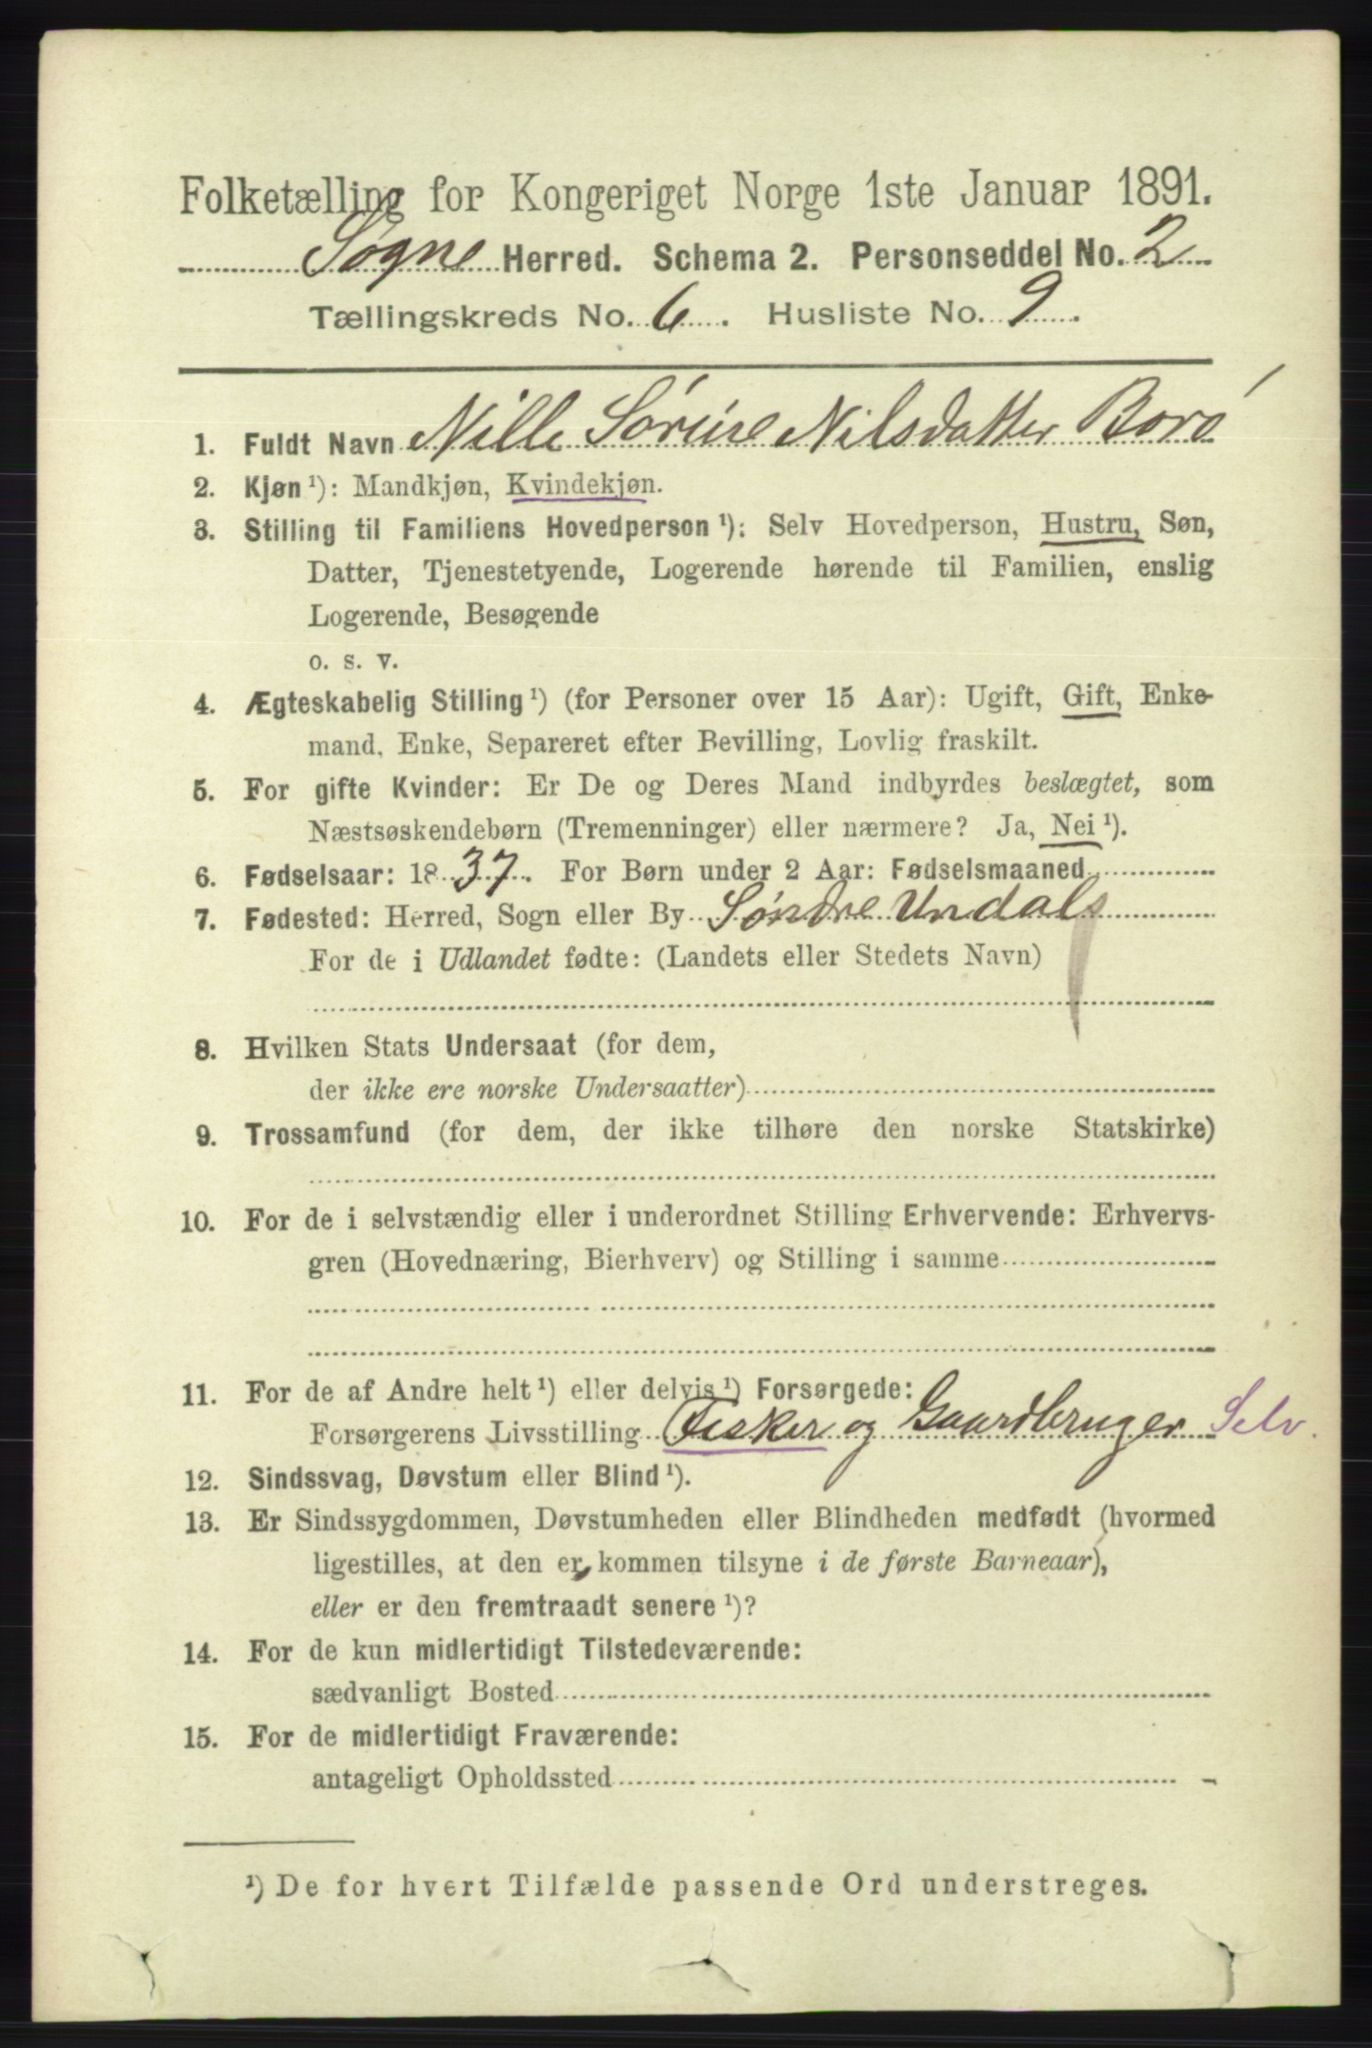 Folketælling for Kongeriget Norge 1ste Januar 1891.
Søgne Herred. Schema 2. Personseddel No. 2
Tællingskreds No. 6. Husliste No. 9.
1. Fuldt Navn Nille Sørine Nilsdatter Borø
2. Kjøn ¹): Mandkjøn, Kvindekjøn.
3. Stilling til Familiens Hovedperson ¹): Selv Hovedperson, Hustru, Søn,
Datter, Tjenestetyende, Logerende hørende til Familien, enslig
Logerende, Besøgende
o. s. v.
4. Ægteskabelig Stilling ¹) (for Personer over 15 Aar): Ugift, Gift, Enke-
mand, Enke, Separeret efter Bevilling, Lovlig fraskilt.
5. For gifte Kvinder: Er De og Deres Mand indbyrdes beslægtet, som
Næstsøskendebørn (Tremenninger) eller nærmere? Ja, Nei ¹).
6. Fødselsaar: 1837. For Børn under 2 Aar: Fødselsmaaned
7. Fødested: Herred, Sogn eller By Søndre Undals
For de i Udlandet fødte: (Landets eller Stedets Navn)
8. Hvilken Stats Undersaat (for dem,
der ikke ere norske Undersaatter)
9. Trossamfund (for dem, der ikke tilhøre den norske Statskirke)
10. For de i selvstændig eller i underordnet Stilling Erhvervende: Erhvervs-
gren (Hovednæring, Bierhverv) og Stilling i samme
11. For de af Andre helt ¹) eller delvis ¹) Forsørgede:
Forsørgerens Livsstilling Fisker og Gaardbruger Selv.
12. Sindssvag, Døvstum eller Blind ¹).
13. Er Sindssygdommen, Døvstumheden eller Blindheden medfødt (hvormed
ligestilles, at den er kommen tilsyne i de første Barneaar),
eller er den fremtraadt senere ¹)?
14. For de kun midlertidigt Tilstedeværende:
sædvanligt Bosted
15. For de midlertidigt Fraværende:
antageligt Opholdssted
¹) De for hvert Tilfælde passende Ord understreges.